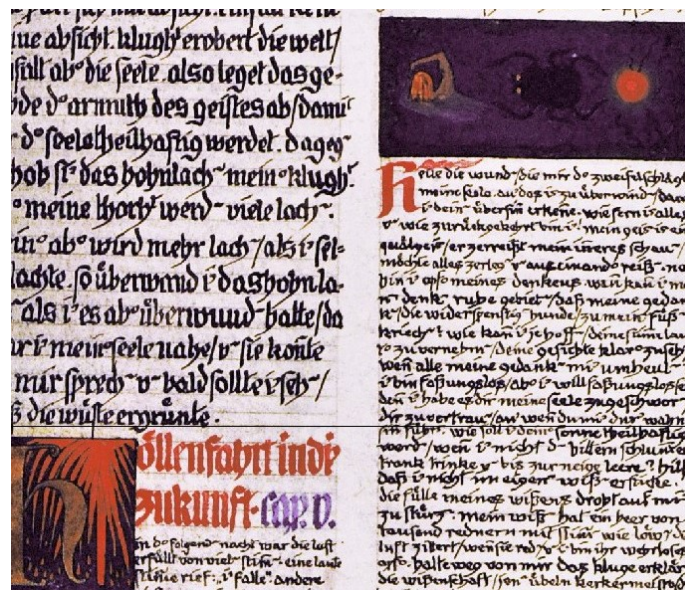 ne absicht. klugh̄ erobert die welt/
fällt ab° die seele. also leget das ge-
de d° armuth des geistes ab/dami
d° seele theilhaftig werdet. dageg̃
hob si' das hohnlach̃ mein° klugh̄.
meine thorh̄ werd̃ viele lach̃.
ab° wird mehr lach̃/als i' sel-
lachte. so überwand i' das hohnla-
als i' es ab° überwund̃ hatte/da
r i' meiner seele nahe/v̄ sie koñte
mir sprech̃ v̄ bald sollte i' seh̃/
ß die wüste ergrünte.
Höllenfahrt in die
Zukunft. cap. v.
in d° folgend̃ nacht war die luft
erfüllt von viel̃ stim̃. eine laute
stim̃e rief: „i' falle". andere
heile die wund̃/die mir d° zweifel schlägt
meine seele. au' das is zu überwind̃/da
i' dein̄ übersiñ erkeñe. wie fern is alles
v̄ wie zurückgekehrt bin i'! mein geis is ein
quälgeis/er zerreißt mein inneres schau̇/
möchte alles zerleg̃ v̄ auseinand° reiß̃. no
bin i' opf° meines denkens. wañ kañ i' m
denk̃ ruhe gebiet̃/daß meine gedan
die widerspenstig̃ hunde/zu mein̄ füß̃
kriech̃? wie kañ i' je hoff̃/deine stim̃e lau
zu vernehm̃/deine gesichte klar° zu seh̃
weñ alle meine gedank̃ mi' umheul̃?
i' bin faßungslos/ab° i' will faßungslos se
deñ i' habe es dir meine seele zugeschwor̃
dir zu vertrau̇/au' weñ du mi' dur' wahn
führ̃. wie soll i' dein° soñe theilhaftig
werd̃/weñ i' nicht d̃ bittern schlum̃e
trank trinke v̄ bis zur neige leere? hilf
daß i' nicht im eigen̄ wiß̃ ersticke.
die fülle meines wißens droht auf mi'
zu stürz̃. mein wiß̃ hat ein heer von
tausend rednern mit stim̃ wie löw̃/d
luft zittert/weñ sie red̃/v̄ i' bin ihr wehrloses
opf°. halte weg von mir das kluge erklär̃
die wißenschaft/jen̄ übeln kerkermeist°/d